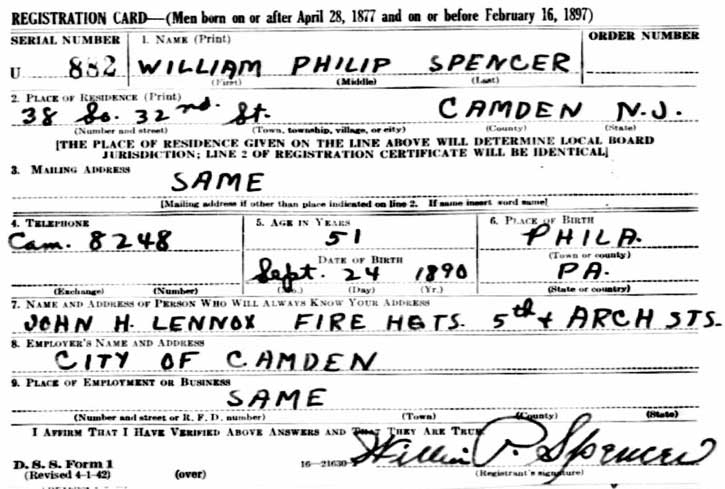 REGISTRATION CARD—(Men born on or after April 28, 1877 and on or before February 16, 1897)
SERIAL NUMBER 1. NAME (Print) ORDER NUMBER
U 882 WILLIAM PHILIP SPENCER
(First) (Middle) (Last)
2. PLACE OF RESIDENCE (Print)
38 So. 32nd. St. CAMDEN N.J.
(Number and street) (Town, township, village, or city) (County) (State)
[THE PLACE OF RESIDENCE GIVEN ON THE LINE ABOVE WILL DETERMINE LOCAL BOARD
JURISDICTION; LINE 2 OF REGISTRATION CERTIFICATE WILL BE IDENTICAL]
3. MAILING ADDRESS
SAME
[Mailing address if other than place indicated on line 2. If same insert word same]
4. TELEPHONE 5. AGE IN YEARS 6. PLACE OF BIRTH
Cam. 8248 51 PHILA.
DATE OF BIRTH (Town or county)
Sept. 24 1890 PA.
(Exchange) (Number) (Mo.) (Day) (Yr.) (State or country)
7. NAME AND ADDRESS OF PERSON WHO WILL ALWAYS KNOW YOUR ADDRESS
JOHN H. LENNOX FIRE HQTS. 5th + ARCH STS.
8. EMPLOYER'S NAME AND ADDRESS
CITY OF CAMDEN
9. PLACE OF EMPLOYMENT OR BUSINESS
SAME
(Number and street or R. F. D. number) (Town) (County) (State)
I AFFIRM THAT I HAVE VERIFIED ABOVE ANSWERS AND THAT THEY ARE TRUE.
D. S. S. Form 1 William P. Spencer
(Revised 4-1-42) (over) 16—21630 (Registrant's signature)